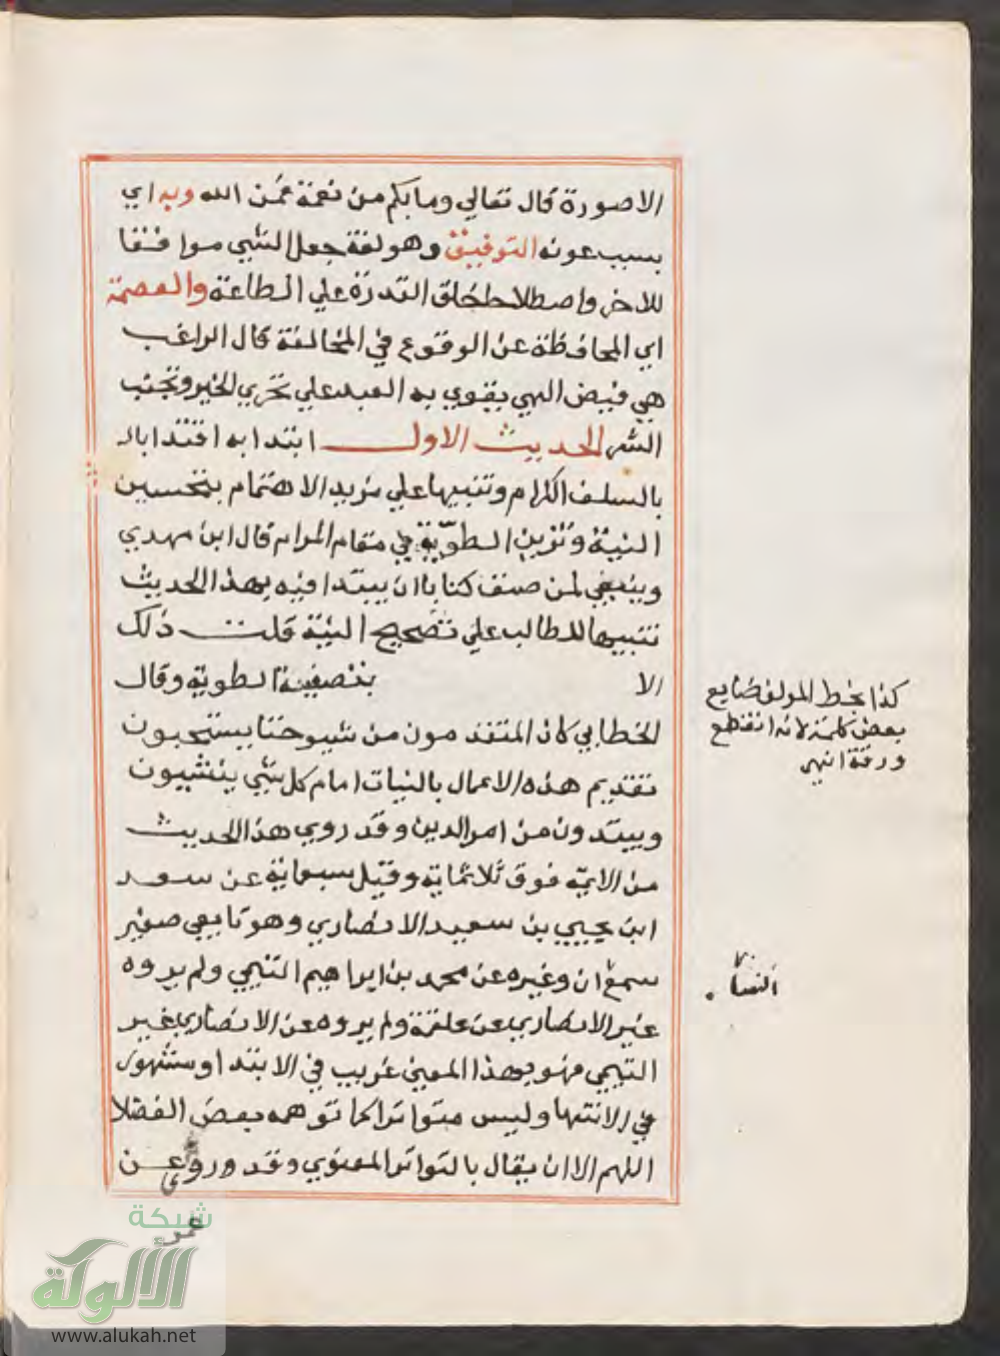 الاصورة قال تعالي وما بكم من نعمة فمن الله وبه اي
بسبب عونه التوفيق وهو لغة جعل الشي موافقا
للاخر واصطلاحا خلق القدرة علي الطاعة والعصمة
اي المحافظة عن الوقوع في المخالفة قال الراغب
هي فيض الهي يقوي به العبد علي تحري الخير وتجنب
الشر الحديث الاول ابتدا به اقتدا بال
بالسلف الكرام وتنبيها علي مزيد الاهتمام بتحسين
النية وتزين الطوية في مقام المرام قال ابن مهدي
وينبغي لمن صنف كتابا ان يبتدا فيه بهذا الحديث
تنبيها للطالب علي تصحيح النية قلت ذلك
الا بتصفية الطوية وقال
الخطابي كان المتقدمون من شيوخنا يستحبون
تقديم هذه الاعمال بالنيات امام كل شي ينشيون
ويبتدون من امر الدين وقد روي هذا الحديث
من الايمة فوق ثلاثماية وقيل سبعماية عن سعد
ابن يحيي بن سعيد الانصاري وهو تابعي صغير
سمع ان وغيره عن محمد بن ابراهيم التيمي ولم يروه
غير الانصاري عن علقمة ولم يروه عن الانصاري غير
التيمي فهو بهذا المعني غريب في الابتدا ومشهور
في الانتها وليس متواترا كما توهمه بعض الفضلا
اللهم الا ان يقال بالتواتر المعنوي وقد وروي عن
عمر
كذا بخط المولف ضايع
بعض كلمة لانه انقطع
ورقة انتهي
شبكة
الألوكة
www.alukah.net